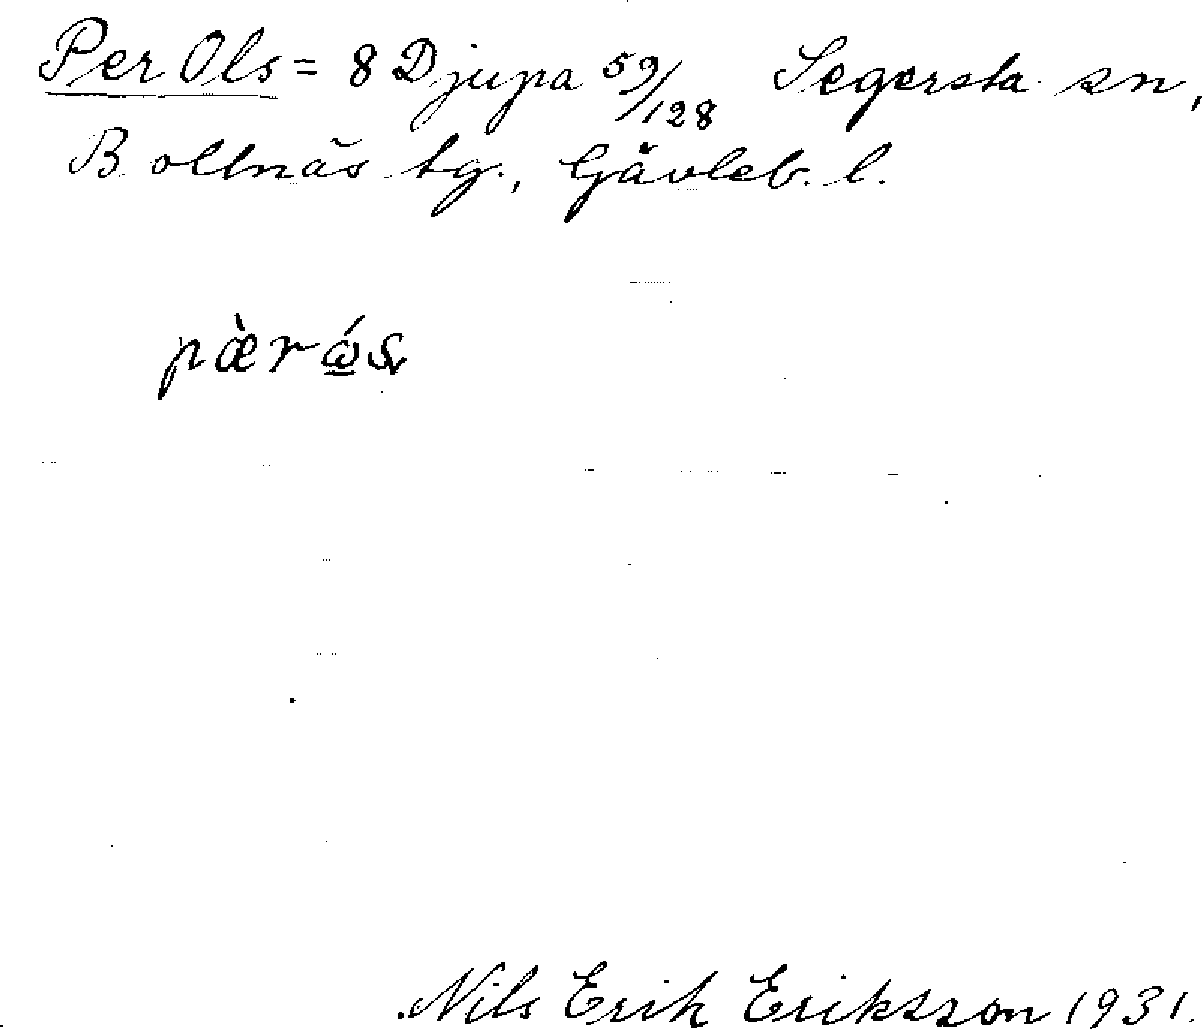 Per Ols = 8 Djupa 59/128 Segersta sn,
Bollnäs tg., Gävleb. l.
pæ̀rώ̲s
Nils Erik Eriksson 1931.